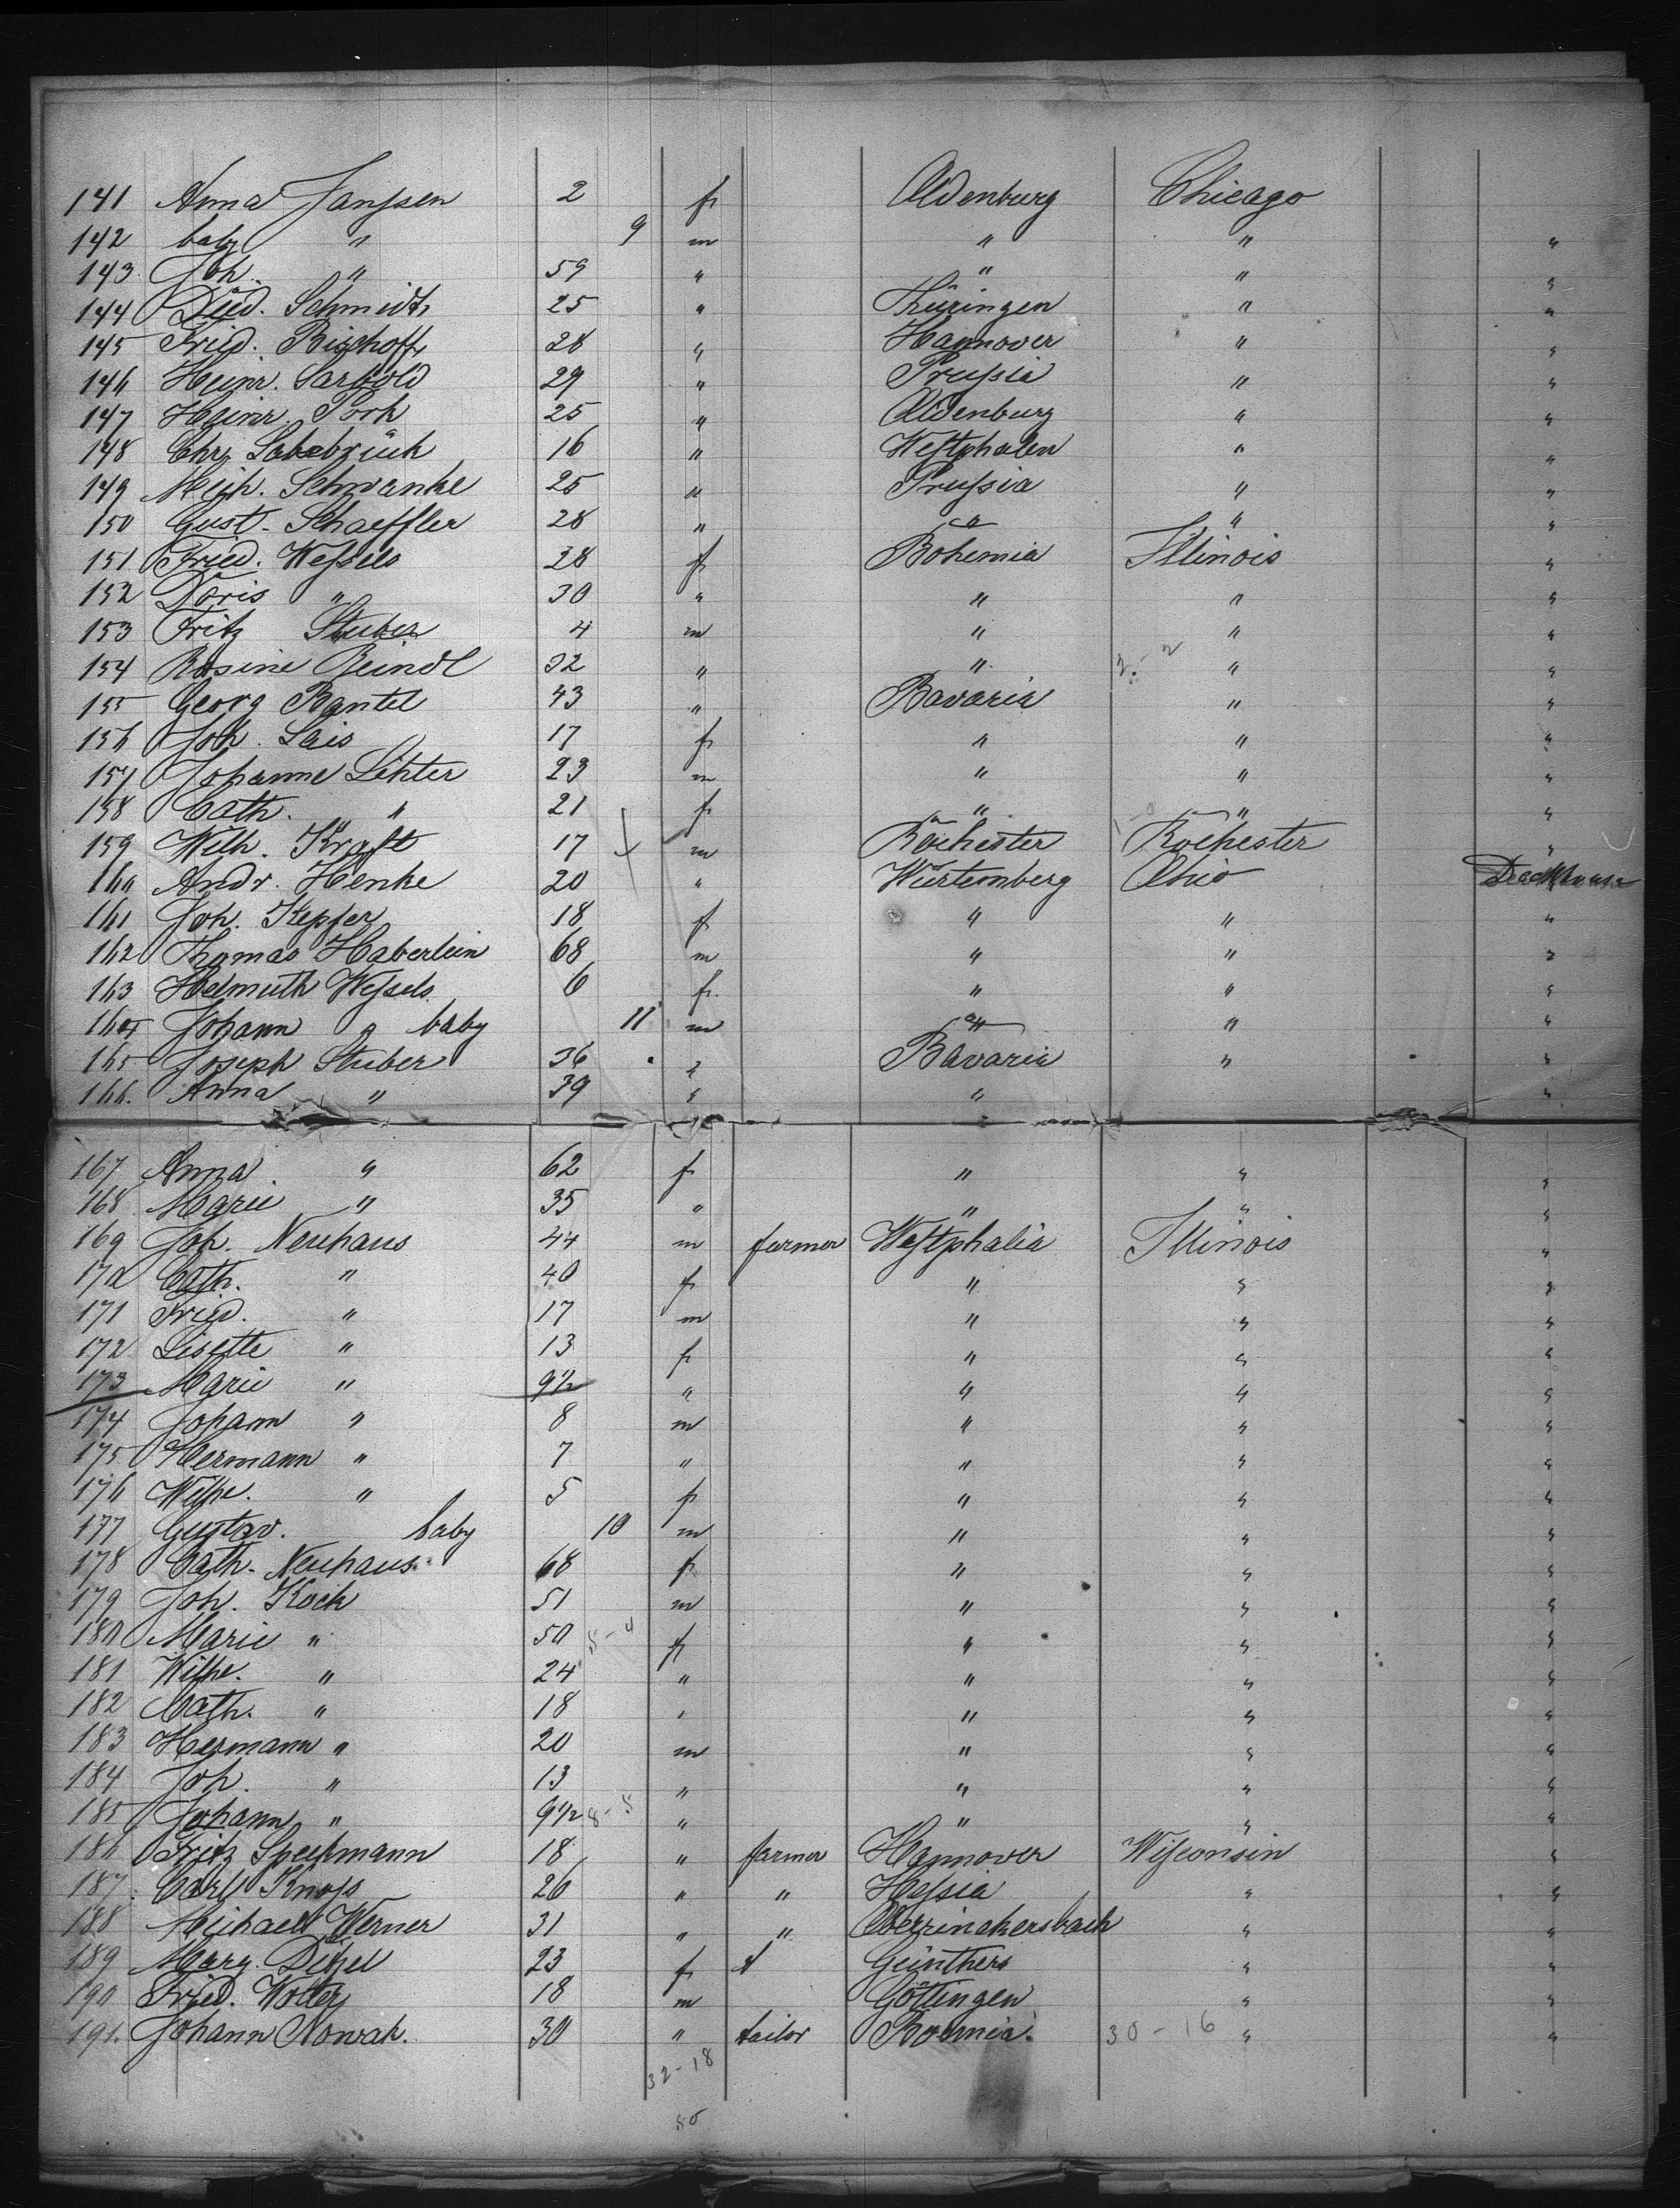 141 Anna Janssen 2 f Oldenburg Chicago
142 baby " 9 m " " "
143 Joh. " 59 " " " "
144 Died. Schmidt 25 " Thüringen " "
145 Fried. Bischoff 28 " Hannover " "
146 Heinr. Sarbold 29 " Prussia " "
147 Heinr. Pork 25 " Oldenburg " "
148 Chr. 16 " Westphalen " "
149 Mich. Schwanke 25 " Prussia " "
150 Gust. Schaeffler 28 " " " "
151 Fried. Wessels 28 f Bohemia Illinois "
152 Doris " 30 " " " "
153 Fritz Stuber 4 m " " "
154 Rosine Reindl 32 " " 2 - 2 " "
155 Georg Bantel 43 " Bavaria " "
156 Joh. Lais 17 f " " "
157 Johanne Lihter 23 m " " "
158 Cath. " 21 f " " "
159 Wilh. Kraft 17 m Rochester Rochester "
160 Andr. Henke 20 " Würtemberg Ohio
161 Joh. Kepfer 18 f " " "
162 Thomas Haberlein 68 m " " "
163 Helmuth Wessels 6 f " " "
164 Johann " baby 11 m " " "
165 Joseph Stuber 36 " Bavaria " "
166. Anna " 39 " " "
167 Anna " 62 f " " "
168 Marie " 35 " " " "
169 Joh. Neuhaus 44 m farmer Westphalia Illinois "
170 Cath. " 40 f " " "
171 Fried. " 17 m " " "
172 Lisette " 13 f " " "
173 Marie " 9½ " " " "
174 Johann " 8 m " " "
175 Hermann " 7 " " " "
176 Wilhe. " 5 f " " "
177 Gustav. baby 10 m " " "
178 Cath. Neuhaus 68 f " " "
179 Joh. Koch 51 m " " "
180 Marie " 50 f " " "
181 Wilhe. " 24 " " " "
182 Cath. " 18 " " " "
183 Hermann " 20 m " " "
184 Joh. " 13 " " " "
185 Johann " 9½ " " " "
186 Fritz Speckmann 18 " farmer Hannover Wisconsin "
187. Carl Knoss 26 " " Hessia " "
188 Michael Werner 31 " " " "
189 Marg. Ditzel 23 f Günthers " "
190 Fried. Wolter 18 m Göttingen " "
191. Johann Nowak. 30 " tailor 30 - 16 " "
32 - 18
50